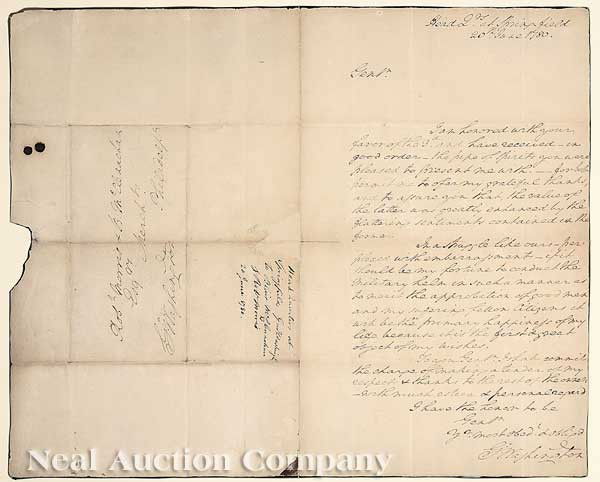 Head Qrs. at Springfield
20th June 1780.
Gentn.
I am honored with your
favor of the 3d. and have received in
good order the pipe of spirits you were
pleased to present me with. for both
permit me to offer my grateful thanks,
and to assure you that, the value of
the latter was greatly enhanced by the
flattering sentiments contained in the
former.
In a struggle like ours per-
plexed with embarrassment if it
should be my fortune to conduct the
Military helm in such a manner as
to merit the approbation of good men
and my suffering fellow Citizens it
will be the primary happiness of my
life because it is the first & great
object of my wishes.
To you Gentn. I shall commit
the charge of making a tender of my
respects & thanks to the rest of the owners
with much esteem & personal regard
I have the honor to be
Gentn.
Yr. most obedt. & obligd
G. Washington
Robt. Morris
Esqrs. or
Philadelp
G. Washington
Head Quarters at
Springfield
20 June 1780
Neal Auction Company